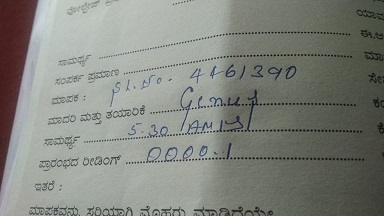 ಸಾಮರ್ಥ್ಯ
ಸಂಪರ್ಕ ಪ್ರಮಾಣ
ಮಾಪಕ : Sl.No. 4461390
ಮಾದರಿ ಮತ್ತು ತಯಾರಿಕೆ Genus
ಸಾಮರ್ಥ್ಯ 5-30 AMPS
ಪ್ರಾರಂಭದ ರೀಡಿಂಗ್ 0000.1
ಇತರೆ :
ಮಾಪಕವನ್ನು ಸರಿಯಾಗಿ ಮೊಹರು ಮಾಡಿದೆಯೇ